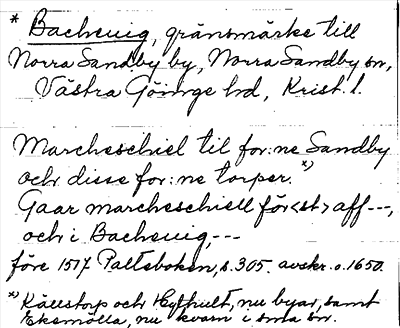 * Bachewig, gränsmärke till
Norra Sandby by, Norra Sandby sn,
Västra Göinge hd, Krist. l.
Marcheschiel til for:ne Sandby
och disse for:ne torper. *)
Gaar marcheschiell för<st> aff ---,
och i Bachewig, ---
före 1517 Palteboken, s. 305. avskr. o. 1650.
*) Källstorp och Hylthult, nu byar, samt
Eksmölla, nu kvarn i sma sn.